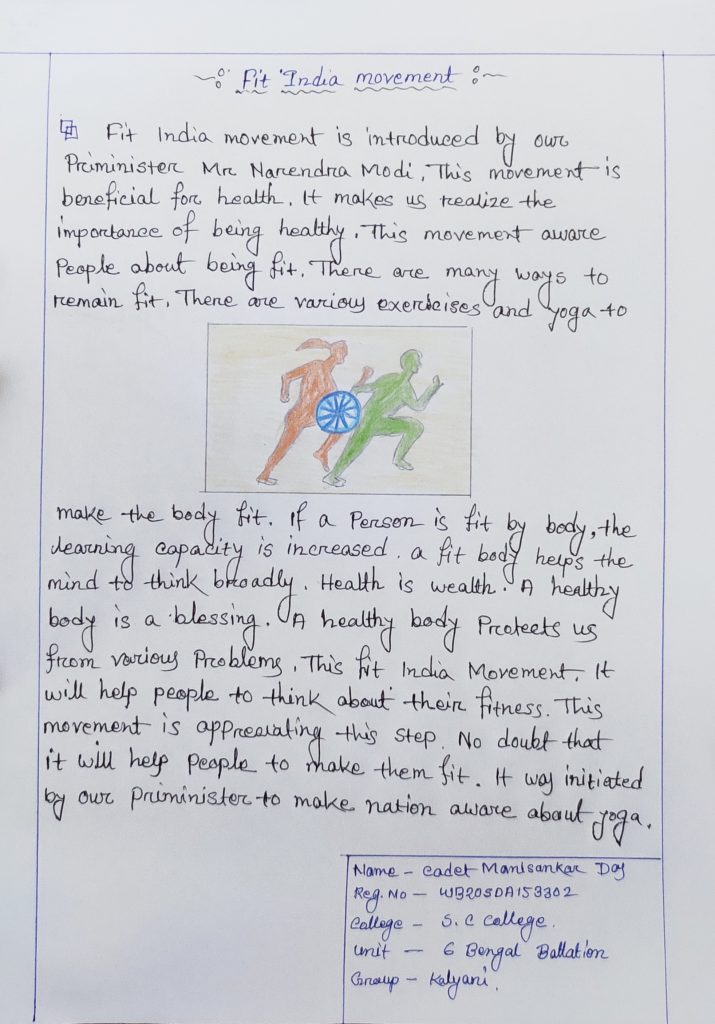 Fit India movement
Fit India movement is introduced by our
Priminister Mr Narendra Modi. This movement is
beneficial for health. It makes us realize the
importance of being healthy. This movement aware
People about being fit. There are many ways to
remain fit. There are various exerciises and yoga to
make the body fit. If a Person is fit by body, the
learning capacity is increased. a fit body helps the
mind to think broadly. Health is wealth. A healthy
body is a blessing. A healthy body Protects us
from various Problems. This fit India Movement. It
will help people to think about their fitness. This
movement is appreviating this step. No doubt that
it will help People to make them fit. It was initiated
by our Priminister to make nation aware about yoga.
Name - Cadet Manisankar Das
Reg. No - WB20SDA153302
College - S.C College.
Unit - 6 Bengal Battation
Group - Kalyani.